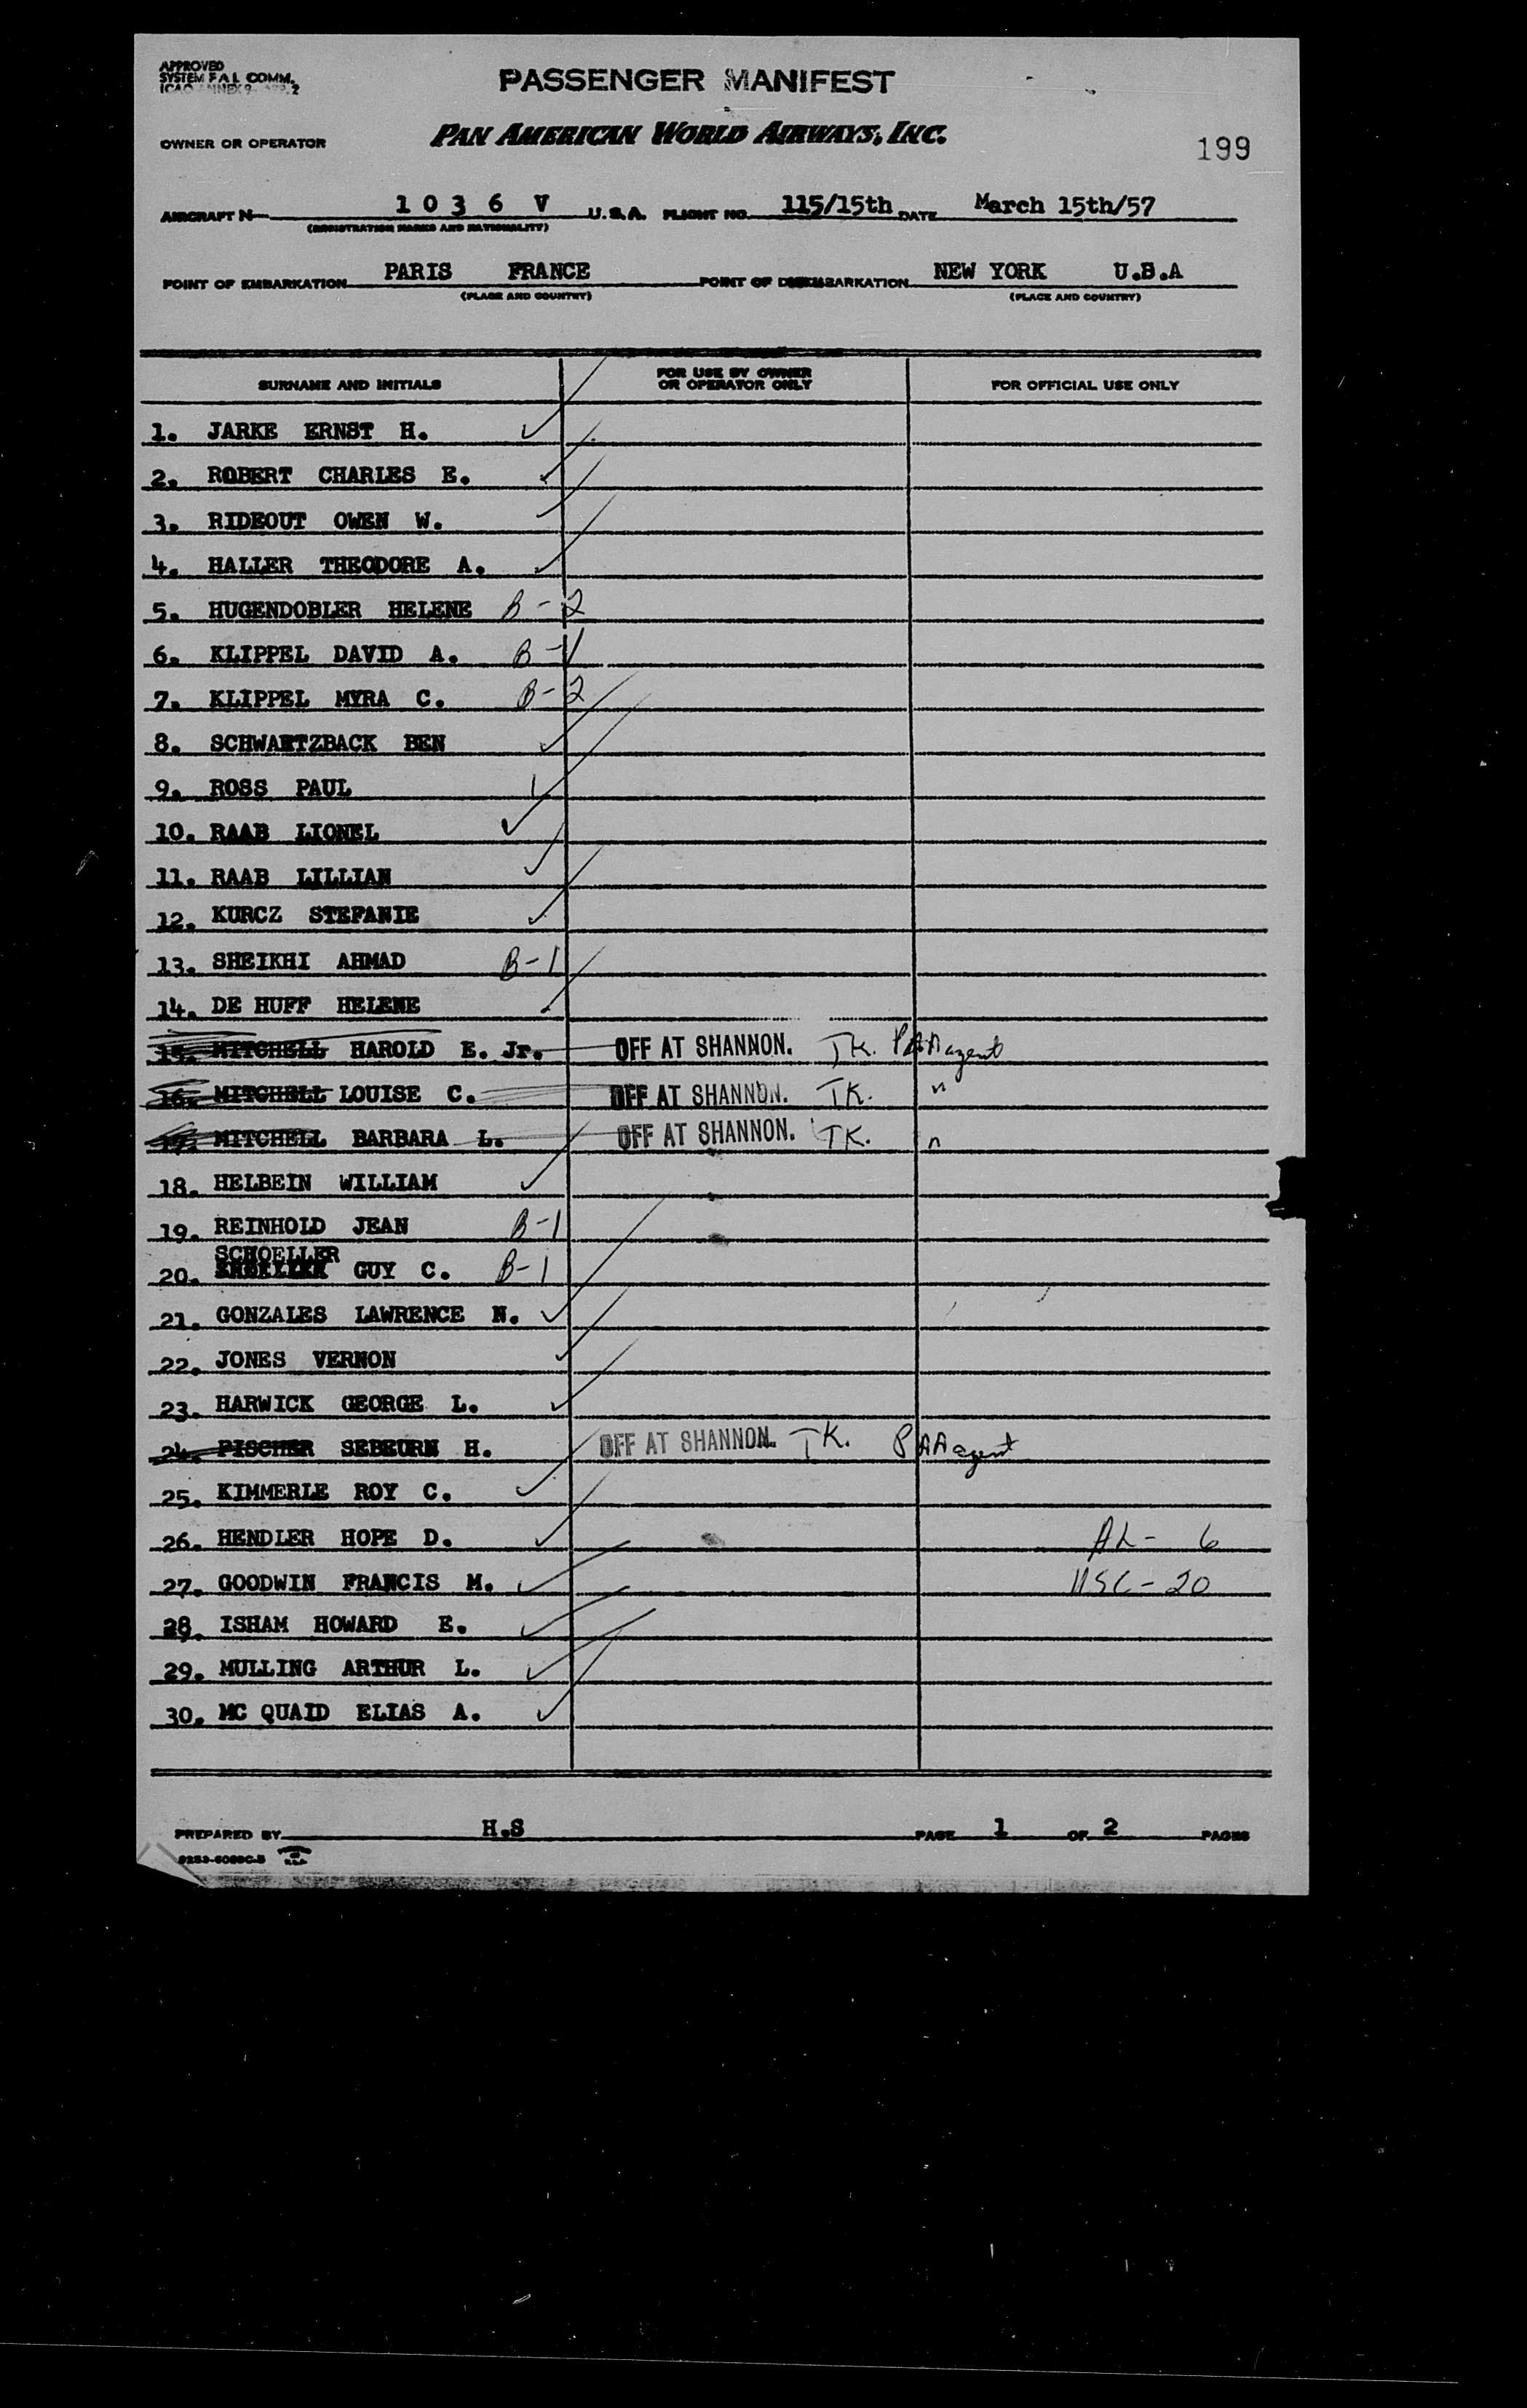 APPROVED
SYSTEM F A L COMM.
ICAO ANNEX 9
PASSENGER MANIFEST
OWNER OR OPERATOR
PAN AMERICAN WORLD AIRWAYS, INC.
199
AIRCRAFT N 1 0 3 6 V U.S.A. FLIGHT NO. 115/15th DATE March 15th/57
(REGISTRATION MARKS AND NATIONALITY)
POINT OF EMBARKATION PARIS FRANCE POINT OF DISEMBARKATION NEW YORK U.S.A
(PLACE AND COUNTRY) (PLACE AND COUNTRY)
SURNAME AND INITIALS FOR USE BY OWNER OR OPERATOR ONLY FOR OFFICIAL USE ONLY
1. JARKE ERNST H.
2. ROBERT CHARLES E.
3. RIDEOUT OWEN W.
4. HALLER THEODORE A.
5. HUGENDOBLER HELENE B-2
6. KLIPPEL DAVID A. B-1
7. KLIPPEL MYRA C. B-2
8. SCHWARTZBACK BEN
9. ROSS PAUL
10. RAAB LIONEL
11. RAAB LILLIAN
12. KURCZ STEFANIE
13. SHEIKHI AHMAD B-1
14. DE HUFF HELENE
15. MITCHELL HAROLD E. Jr. OFF AT SHANNON. TK. PAA agent
16. MITCHELL LOUISE C. OFF AT SHANNON. TK. "
17. MITCHELL BARBARA L. OFF AT SHANNON. TK. "
18. HELBEIN WILLIAM
19. REINHOLD JEAN B-1
SCHOELLER
20. GUY C. B-1
21. GONZALES LAWRENCE N.
22. JONES VERNON
23. HARWICK GEORGE L.
24. PISCHER SEBEURN H. OFF AT SHANNON. TK. PAA agent
25. KIMMERLE ROY C.
26. HENDLER HOPE D. AL- 6
27. GOODWIN FRANCIS M. USC-20
28. ISHAM HOWARD E.
29. MULLING ARTHUR L.
30. MC QUAID ELIAS A.
PREPARED BY H.S PAGE 1 OF 2 PAGES